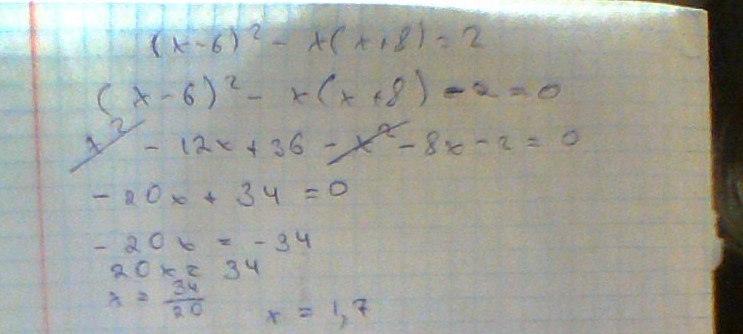 (x-6)² - x(x+8) = 2
(x-6)² - x(x+8) - 2 = 0
x² - 12x + 36 - x² - 8x - 2 = 0
-20x + 34 = 0
-20x = -34
20x = 34
x = 34/20 x = 1,7